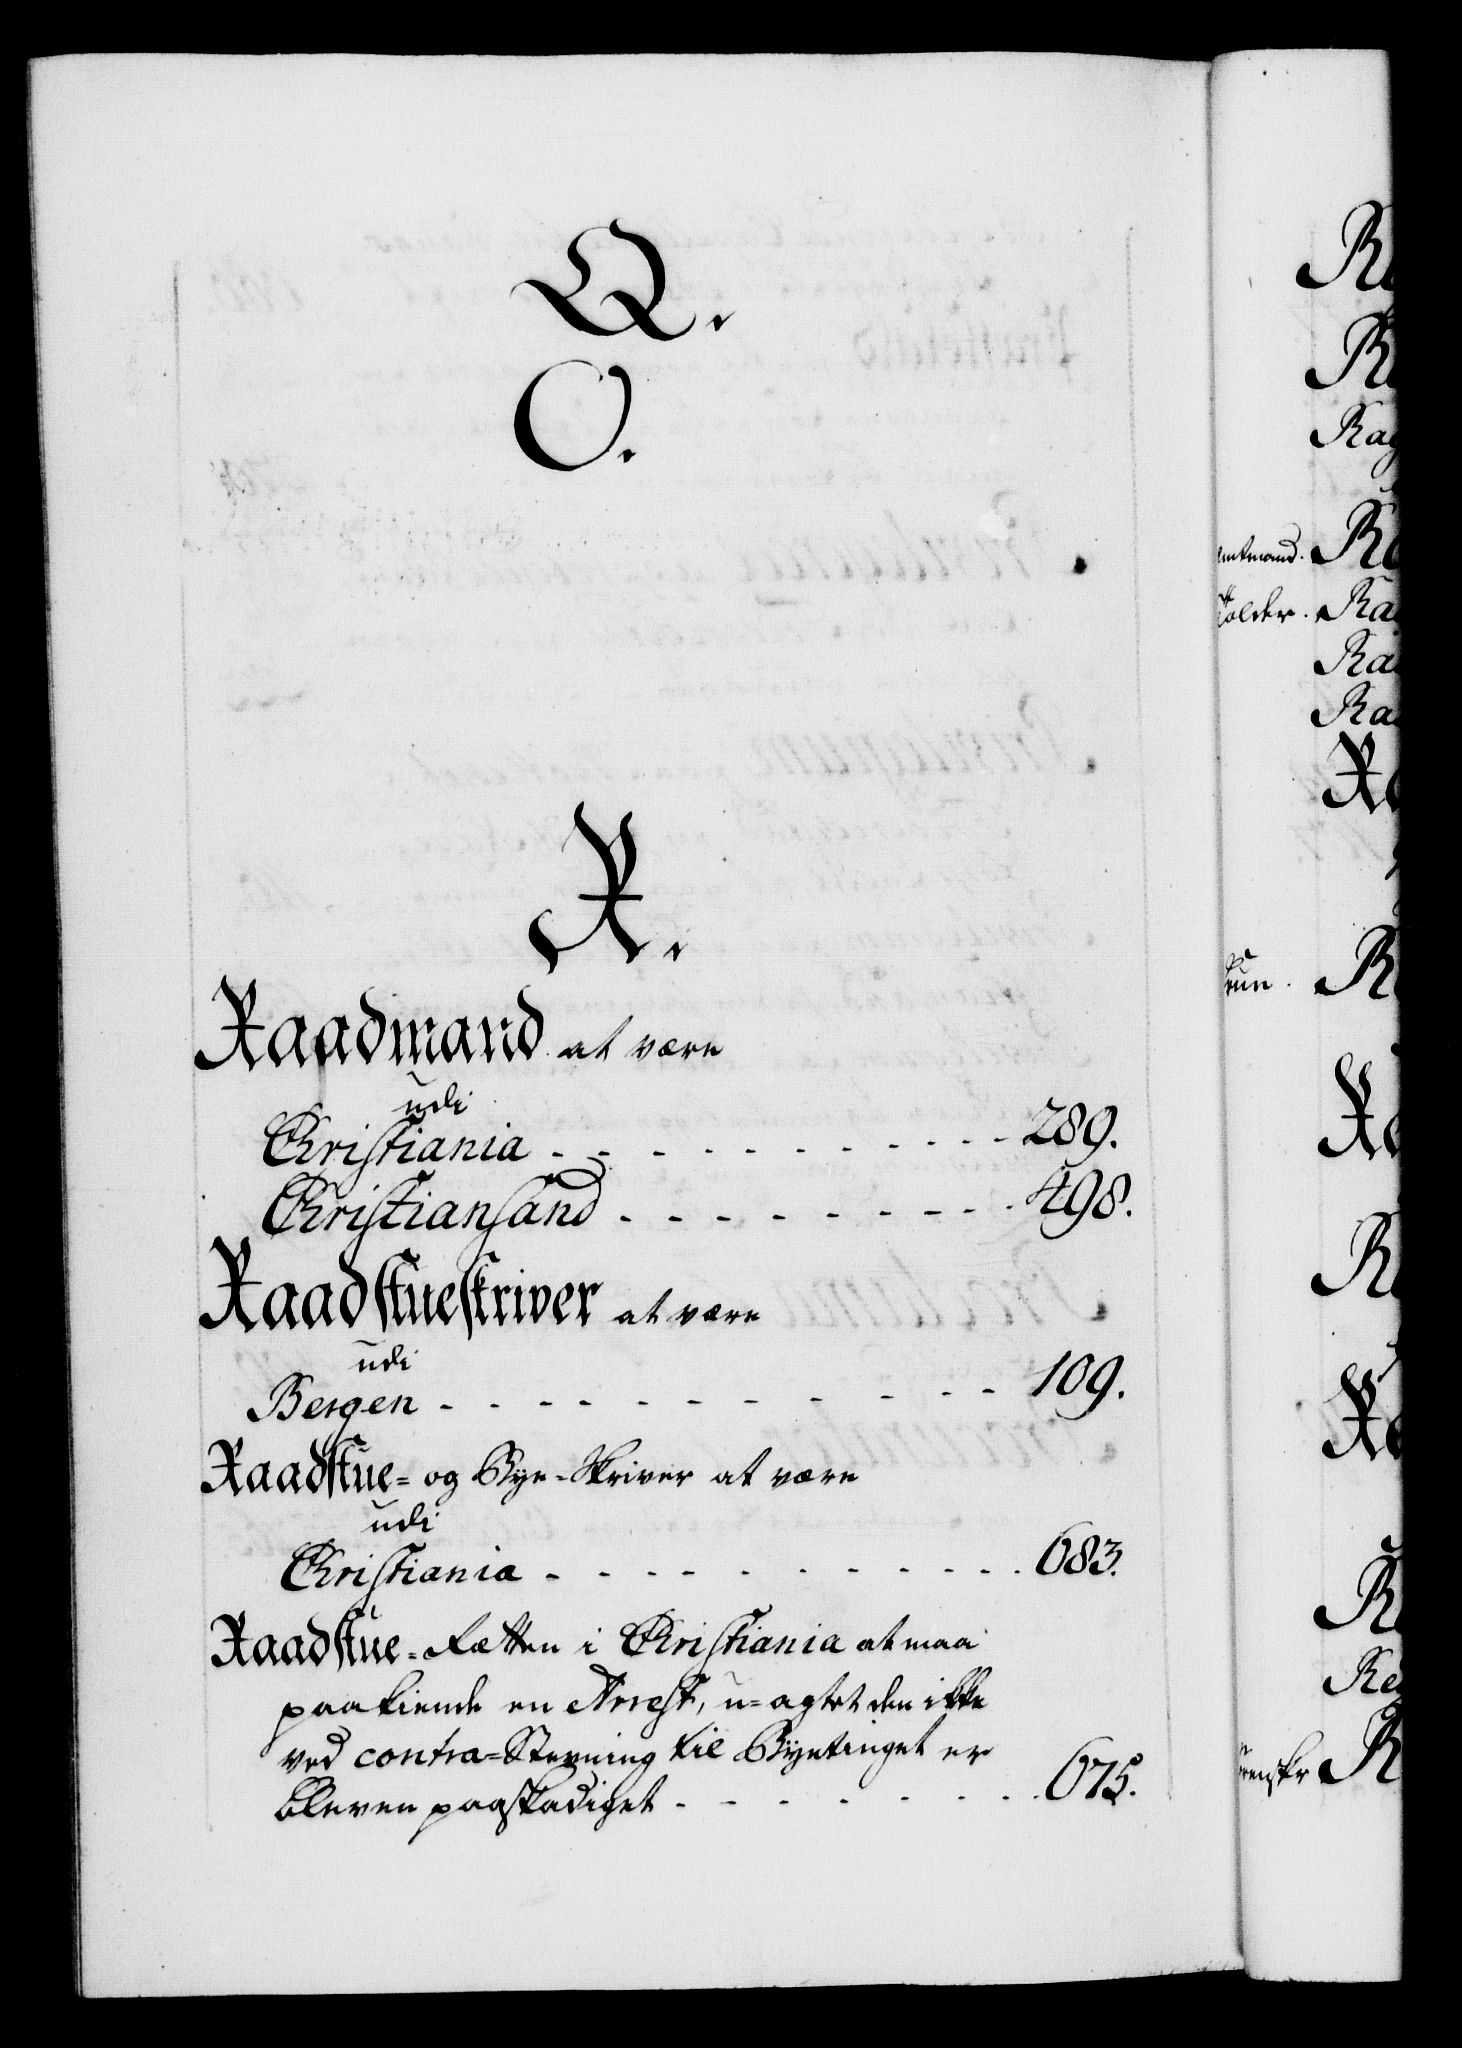 Q.
O.
R.
Raadmand at være
udi
Christiania - - - - - - - - - - 289.
Christiansand - - - - - - - - - 498.
Raadstueskriver at være
udi
Bergen - - - - - - - - - - - 109.
Raadstue- og Bye-Skriver at være
udi
Christiania - - - - - - - - - - 683.
Raadstue-Rætten i Christiania at maa
paakiende en Arrest, u-agtet den ikke
ved contra-Stevning til Byetinget er
bleven paaskadiget - - - - - - - - 675.
amtmand.
Ra